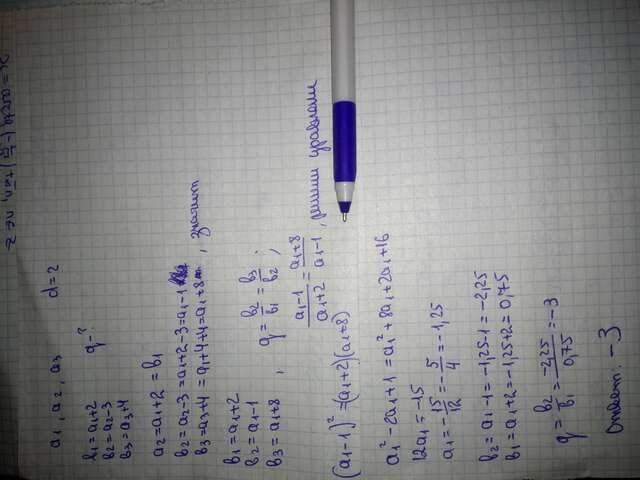 a₁, a₂, a₃ d=2
b₁=a₁+2 q-?
b₂=a₂-3
b₃=a₃+4
a₂=a₁+2=b₁
b₂=a₂-3=a₁+2-3=a₁-1
b₃=a₃+4=a₁+4+4=a₁+8, значит
b₁=a₁+2
b₂=a₁-1
b₃=a₁+8, q=b₂/b₁=b₃/b₂;
(a₁-1)/(a₁+2)=(a₁+8)/(a₁-1), решим уравнение
(a₁-1)²=(a₁+2)(a₁+8)
a₁²-2a₁+1=a₁²+8a₁+2a₁+16
12a₁=-15
a₁=-15/12=-5/4=-1,25
b₂=a₁-1=-1,25-1=-2,25
b₁=a₁+2=-1,25+2=0,75
q=b₂/b₁=-2,25/0,75=-3
Ответ: -3